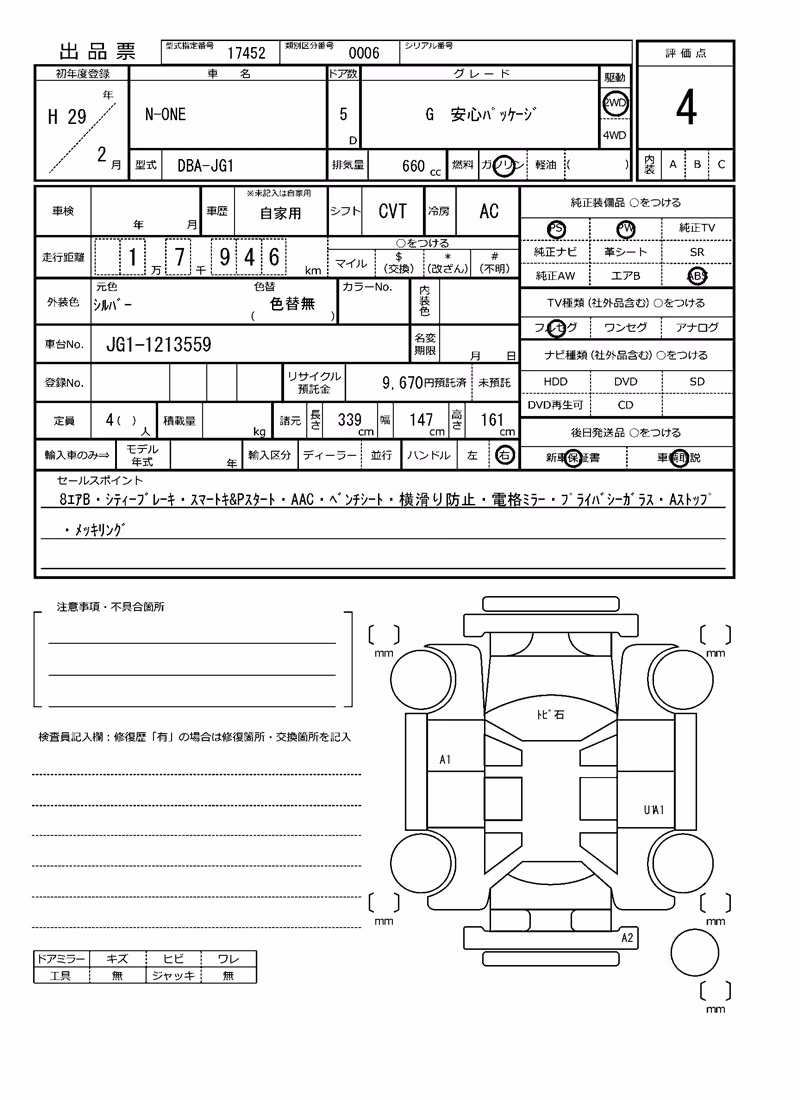 出品票 型式指定番号 17452 類別区分番号 0006 シリアル番号
評価点
初年度登録 車名 ドア数 グレード 駆動
H 29 年 2 月 N-ONE 5 D G 安心ﾊﾟｯｹｰｼﾞ 2WD 4WD
4
型式 DBA-JG1 排気量 660 cc 燃料 ガソリン 軽油 ( ) 内装 A B C
※未記入は自家用
車検 年 月 車歴 自家用 シフト CVT 冷房 AC
純正装備品 ○をつける
PS PW 純正TV
純正ナビ 革シート SR
純正AW エアB ABS
走行距離 1 万 7 千 9 4 6 km
○をつける
マイル $ (交換) * (改ざん) # (不明)
外装色 元色 ｼﾙﾊﾞｰ 色替 色替無 ( ) カラーNo. 内装色
TV種類(社外品含む)○をつける
フルセグ ワンセグ アナログ
車台No. JG1-1213559 名変期限 月 日
ナビ種類(社外品含む)○をつける
HDD DVD SD
DVD再生可 CD
登録No. リサイクル預託金 9,670円預託済 未預託
定員 4( ) 人 積載量 kg 諸元 長さ 339 cm 幅 147 cm 高さ 161 cm
後日発送品 ○をつける
新車保証書 車輌取説
輸入車のみ⇒ モデル年式 年 輸入区分 ディーラー 並行 ハンドル 左 右
セールスポイント
8ｴｱB・ｼﾃｨｰﾌﾞﾚｰｷ・ｽﾏｰﾄｷ&Pｽﾀｰﾄ・AAC・ﾍﾞﾝﾁｼｰﾄ・横滑り防止・電格ﾐﾗｰ・ﾌﾟﾗｲﾊﾞｼｰｶﾞﾗｽ・Aｽﾄｯﾌﾟ
・ﾒｯｷﾘﾝｸﾞ
注意事項・不具合箇所
mm mm
ﾄﾋﾞ石
検査員記入欄：修復歴「有」の場合は修復箇所・交換箇所を記入
A1
U1A1
mm mm
A2
ドアミラー キズ ヒビ ワレ
工具 無 ジャッキ 無
mm